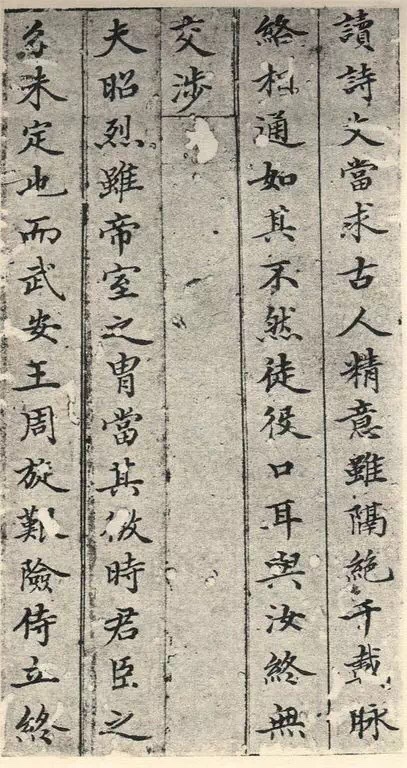 讀詩文當求古人精意雖隔絕千載脉
絡相通如其不然徒役口耳與汝終無
交涉
夫昭烈雖帝室之胄當其微時君臣之
未定也而武安王周旋艱險侍立終